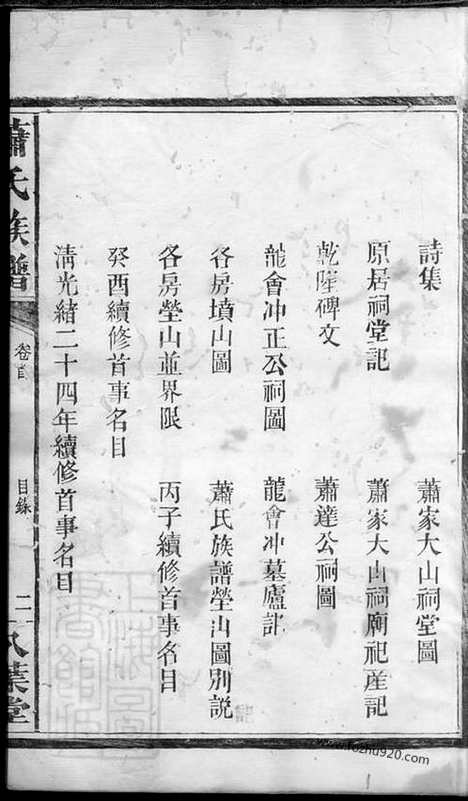 詩集　蕭家大山祠堂圖
原居祠堂記　蕭家大山祠廟祀産記
乾隆碑文　蕭達公祠圖
龍會冲正公祠圖　龍會冲墓廬記
各房墳山圖　蕭氏族譜塋山圖別說
各房塋山並界限　丙子續修首事名目
癸酉續修首事名目
淸光緒二十四年續修首事名目
蕭氏族譜　卷首　目錄　二　八葉堂
www.fozhu920.com